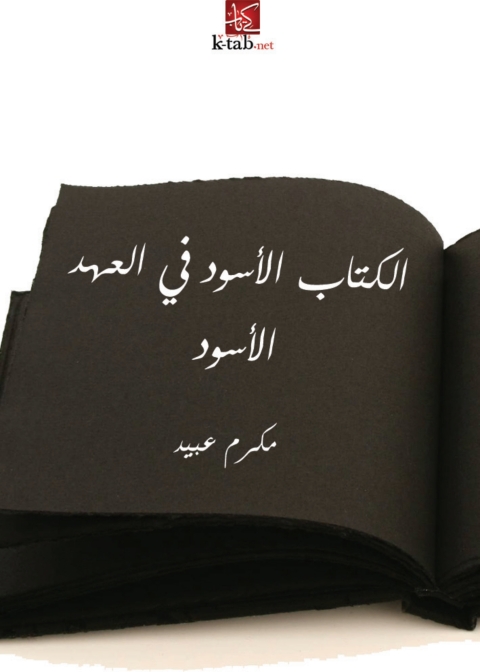 كتاب
k-tab.net
الكتاب الأسود في العهد
الأسود
مكرم عبيد